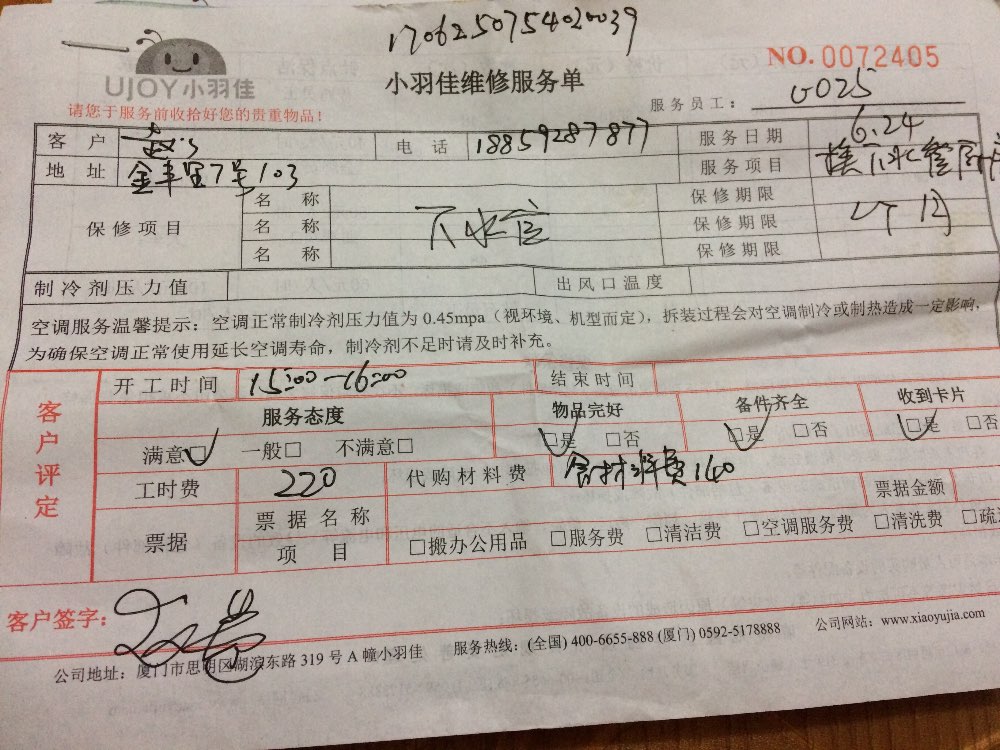 1706250754020039
UJOY小羽佳
小羽佳维修服务单
NO.0072405
请您于服务前收拾好您的贵重物品！
服务员工： G025
客户 电话 18859287877 服务日期 6.24
地址 金丰里7号103 服务项目
保修项目 名称 下水管 保修期限
名称 保修期限 个月
名称 保修期限
制冷剂压力值 出风口温度
空调服务温馨提示：空调正常制冷剂压力值为 0.45mpa（视环境、机型而定），拆装过程会对空调制冷或制热造成一定影响，
为确保空调正常使用延长空调寿命，制冷剂不足时请及时补充。
客户评定
开工时间 15:00-16:00 结束时间
服务态度 物品完好 备件齐全 收到卡片
满意□ 一般□ 不满意□ □是 □否 □是 □否 □是 □否
工时费 220 代购材料费 含材料费140
票据 票据名称 票据金额
项目 □搬办公用品 □服务费 □清洁费 □空调服务费 □清洗费 □疏
客户签字：
公司地址：厦门市思明区湖滨东路 319 号 A 幢小羽佳 服务热线：(全国) 400-6655-888 (厦门) 0592-5178888 公司网站：www.xiaoyujia.com